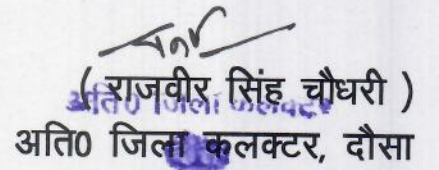 ( राजवीर सिंह चौधरी )
अति0 जिला कलक्टर
अति0 जिला कलक्टर, दौसा